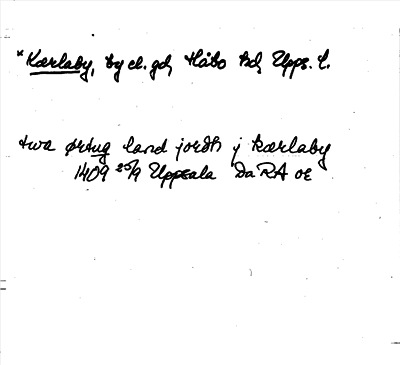 *Kærlaby, by el. gd, Håbo hd, Upps. l.
twa ørtug land jordh j kærlaby
1409 25/9 Uppsala Da RA or